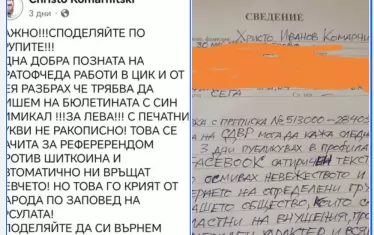 Christo Komarnitski
3 дни
АЖНО!!!СПОДЕЛЯЙТЕ ПО
РУПИТЕ!!!
ДНА ДОБРА ПОЗНАТА НА
РАТОФЧЕДА РАБОТИ В ЦИК И ОТ
ЕЯ РАЗБРАХ ЧЕ ТРЯБВА ДА
ИШЕМ НА БЮЛЕТИНАТА С СИН
ИМИКАЛ !!!ЗА ЛЕВА!!! С ПЕЧАТНИ
УКВИ НЕ РАКОПИСНО! ТОВА СЕ
АЧИТА ЗА РЕФЕРЕРЕНДОМ
РОТИВ ШИТКОИНА И
ВТОМАТИЧНО НИ ВРЪЩАТ
ЕВЧЕТО! НО ТОВА ГО КРИЯТ ОТ
АРОДА ПО ЗАПОВЕД НА
РСУЛАТА!
ПОДЕЛЯЙТЕ ДА СИ ВЪРНЕМ
СВЕДЕНИЕ
ХРИСТО ИВАНОВ КОМАРНИ
СЕГА
С ПРЕПИСКА №513000-
НА СДВР МОГА ДА КАЖА СЛЕДН
3 ДНИ ПУБЛИКУВАХ В ПРОФИЛА
FACEBOOK САТИРИЧЕН ТЕКСТ
ОСМИВАХ НЕВЕЖЕСТВОТО И
НА ОПРЕДЕЛЕНИ ГРУ
ОБЩЕСТВО, КОИТО С
НА ВНУШЕНИЯ, ПРО
ХАРАКТЕР И ВСЯ